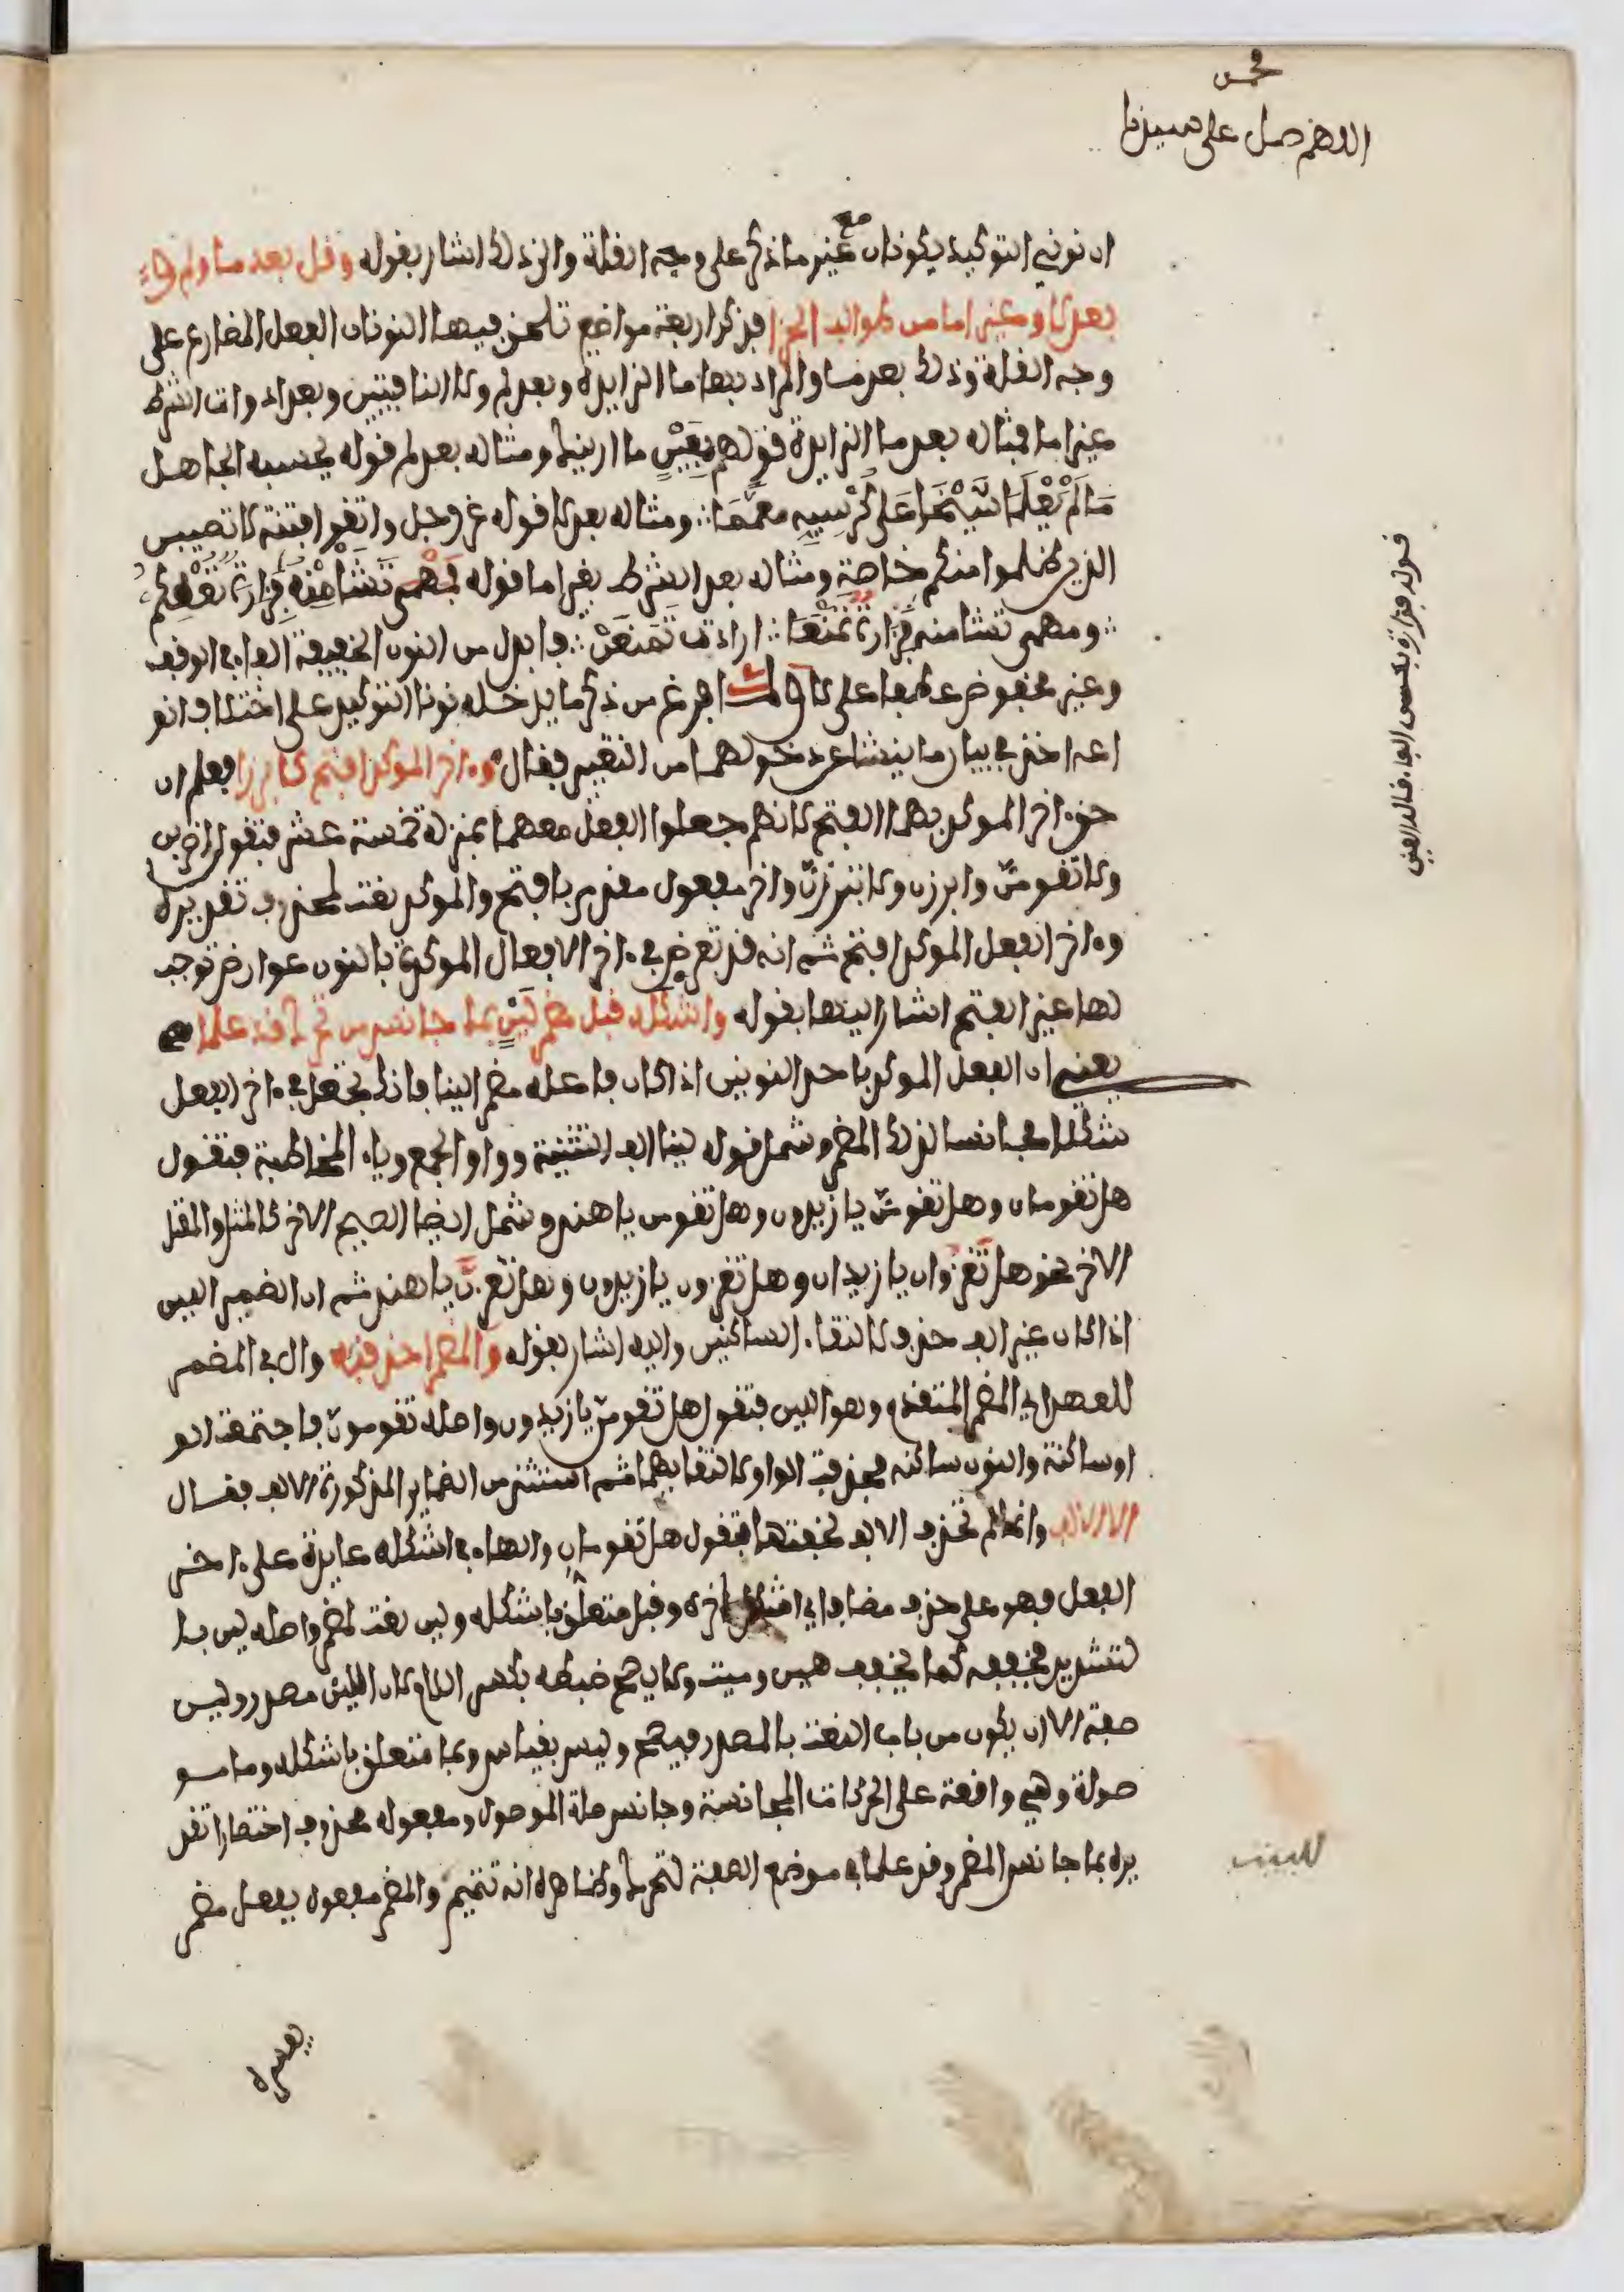 اللهم صل على سيدنا
ان نوني التوكيد يكونان مع غير ما ذكر على وجه القلة والى ذلك اشار بقوله وقل بعد ما ولم و
بعد لا وغير اما من طوالب الجزا فذكر اربعة مواضع تلحق فيها النونان الفعل المضارع على
وجه القلة وذلك بعد ما والمراد بها ما الزايدة وبعد لم ولا النافيتين وبعد ادوات الشرط
غير اما فمثاله بعد ما الزايدة قولهم بعين ما ارينك ومثاله بعد لم قوله يحسبه الجاهل
ما لم يعلما شيخا على كرسيه معمما ∴ ومثاله بعد لا قوله عز وجل واتقوا فتنة لا تصيبن
الذين ظلموا منكم خاصة ومثاله بعد الشرط بغير اما قوله فمهمى تشا منه فزارة تعطكم
∴ ومهمى تشا منه فزارة تمنعا ∴ اراد تمنعن ∴ فابدل من النون الخفيفة الفا في الوقف
وغير مخفوض عطفا على لا ولما فرغ من ذكر ما يدخله نونا التوكيد على اختلاف انو
اعه اخذ في بيان ما ينشا عن دخولهما من التغيير فقال وءاخر الموكد افتح كابرزا فعلم ان
حق ءاخر الموكد بهما الفتح لانهم جعلوا الفعل معهما بمنزلة خمسة عشر فتقول اضربن
ولا تقومن وابرزن ولا تبرزن واخر مفعول مقدم بافتح والموكد نعت لمحذوف تقديره
وءاخر الفعل الموكد افتح ثم انه قد تعرض في ءاخر الافعال الموكدة بالنون عوارض توجب
لها غير الفتح اشار اليها بقوله واشكله قبل مضمر لين بما جانس من تحرك قد علما
يعني ان الفعل الموكد باحد النونين اذا كان فاعله مضمرا لينا فانك تجعل في ءاخر الفعل
شكلا مجانسا لذلك المضمر وشمل قوله لينا الف التثنية وواو الجمع وياء المخاطبة فتقول
هل تقومان وهل تقومن يا زيدون وهل تقومن يا هند وشمل ايضا الصحيح الاخر كالمثل والمعتل
الاخر نحو هل تغزوان يا زيدان وهل تغزن يا زيدون وهل تغزن يا هند ثم ان الضمير اللين
اذا كان غير الف حذف لالتقاء الساكنين واليه اشار بقوله والمضمر احذفنه وال في المضمر
للعهد اي المضمر المتقدم وهو اللين فتقول هل تقومن يا زيدون واصله تقومون فاجتمعت الو
او ساكنة والنون ساكنة فحذفت الواو لالتقايهما ثم استثنى من الضماير المذكورة الالف فقال
الا الالف وانما لم تحذف الالف لخفتها فتقول هل تقومان والهاء في اشكله عايدة على ءاخر
الفعل فهو على حذف مضاف اي اشكل اخره وقبل متعلق باشكله ولين نعت لمضمر واصله لين با
لتشديد فخففه كما يخفف هين وميت ولا يصح ضبطه بكسر اللام لان اللين مصدر وليس
صفة الا ان يكون من باب النعت بالمصدر فيصح وليس بقياس وبما متعلق باشكله وما مو
صولة وهي واقعة على الحركات المجانسة وجانس صلة الموصول ومفعوله محذوف اختصارا تقد
يره بما جانس المضمر وقد علما في موضع الصفة لتحرك وظاهره انه تتميم والمضمر مفعول بفعل مضمر
يفسره
قوله فزارة بكسر الفاء قاله العيني
للبيت